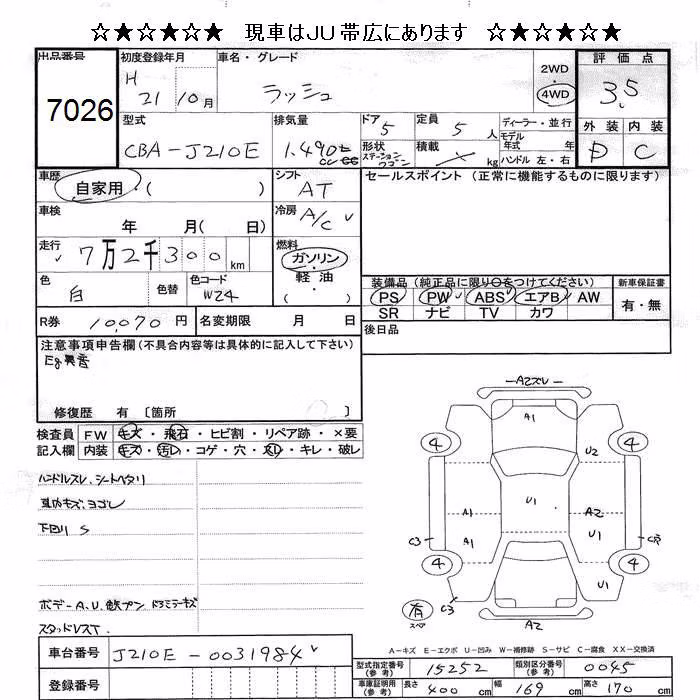 ☆★☆★☆★ 現車はJU帯広にあります ☆★☆★☆★
出品番号 7026
初度登録年月 H 21 10月
車名・グレード ラッシュ
2WD 4WD
評価点 3.5
外装 D 内装 C
型式 CBA-J210E
排気量 1.490 cc
ドア 5
形状 ステーションワゴン
定員 5 人
積載 kg
ディーラー・並行
モデル年式 年
ハンドル 左・右
車歴 自家用 ( )
シフト AT
セールスポイント (正常に機能するものに限ります)
車検 年 月( 日)
冷房 A/C
走行 7万2千300 km
燃料 ガソリン 軽油 ( )
色 白 色替 色コード W24
装備品 (純正品に限り○をつけてください)
新車保証書 有・無
PS PW ABS エアB AW
SR ナビ TV カワ
R券 10,070 円 名変期限 月 日
後日品
注意事項申告欄 (不具合内容等は具体的に記入して下さい)
Eg異音
修復歴 有 〔箇所 〕
検査員記入欄
FW キズ・飛石・ヒビ割・リペア跡・×要
内装 キズ・汚レ・コゲ・穴・スレ・キレ・破レ
ハンドルスレ、シートヘタリ
車内キズ、ヨゴレ
下回り S
ボデーA.U.
スタッドレスT.
A2ズレ
A1
4 4
U2
U1
A1 A2
A1 U1
C3
4 4
U1
有 スペア
C3
A2
A-キズ E-エクボ U-凹み W-補修跡 S-サビ C-腐食 XX-交換済
車台番号 J210E-0031984
登録番号
型式指定番号 (参考) 15252 類別区分番号 (参考) 0045
車庫証明用 (参考) 長さ 400 cm 幅 169 cm 高さ 170 cm